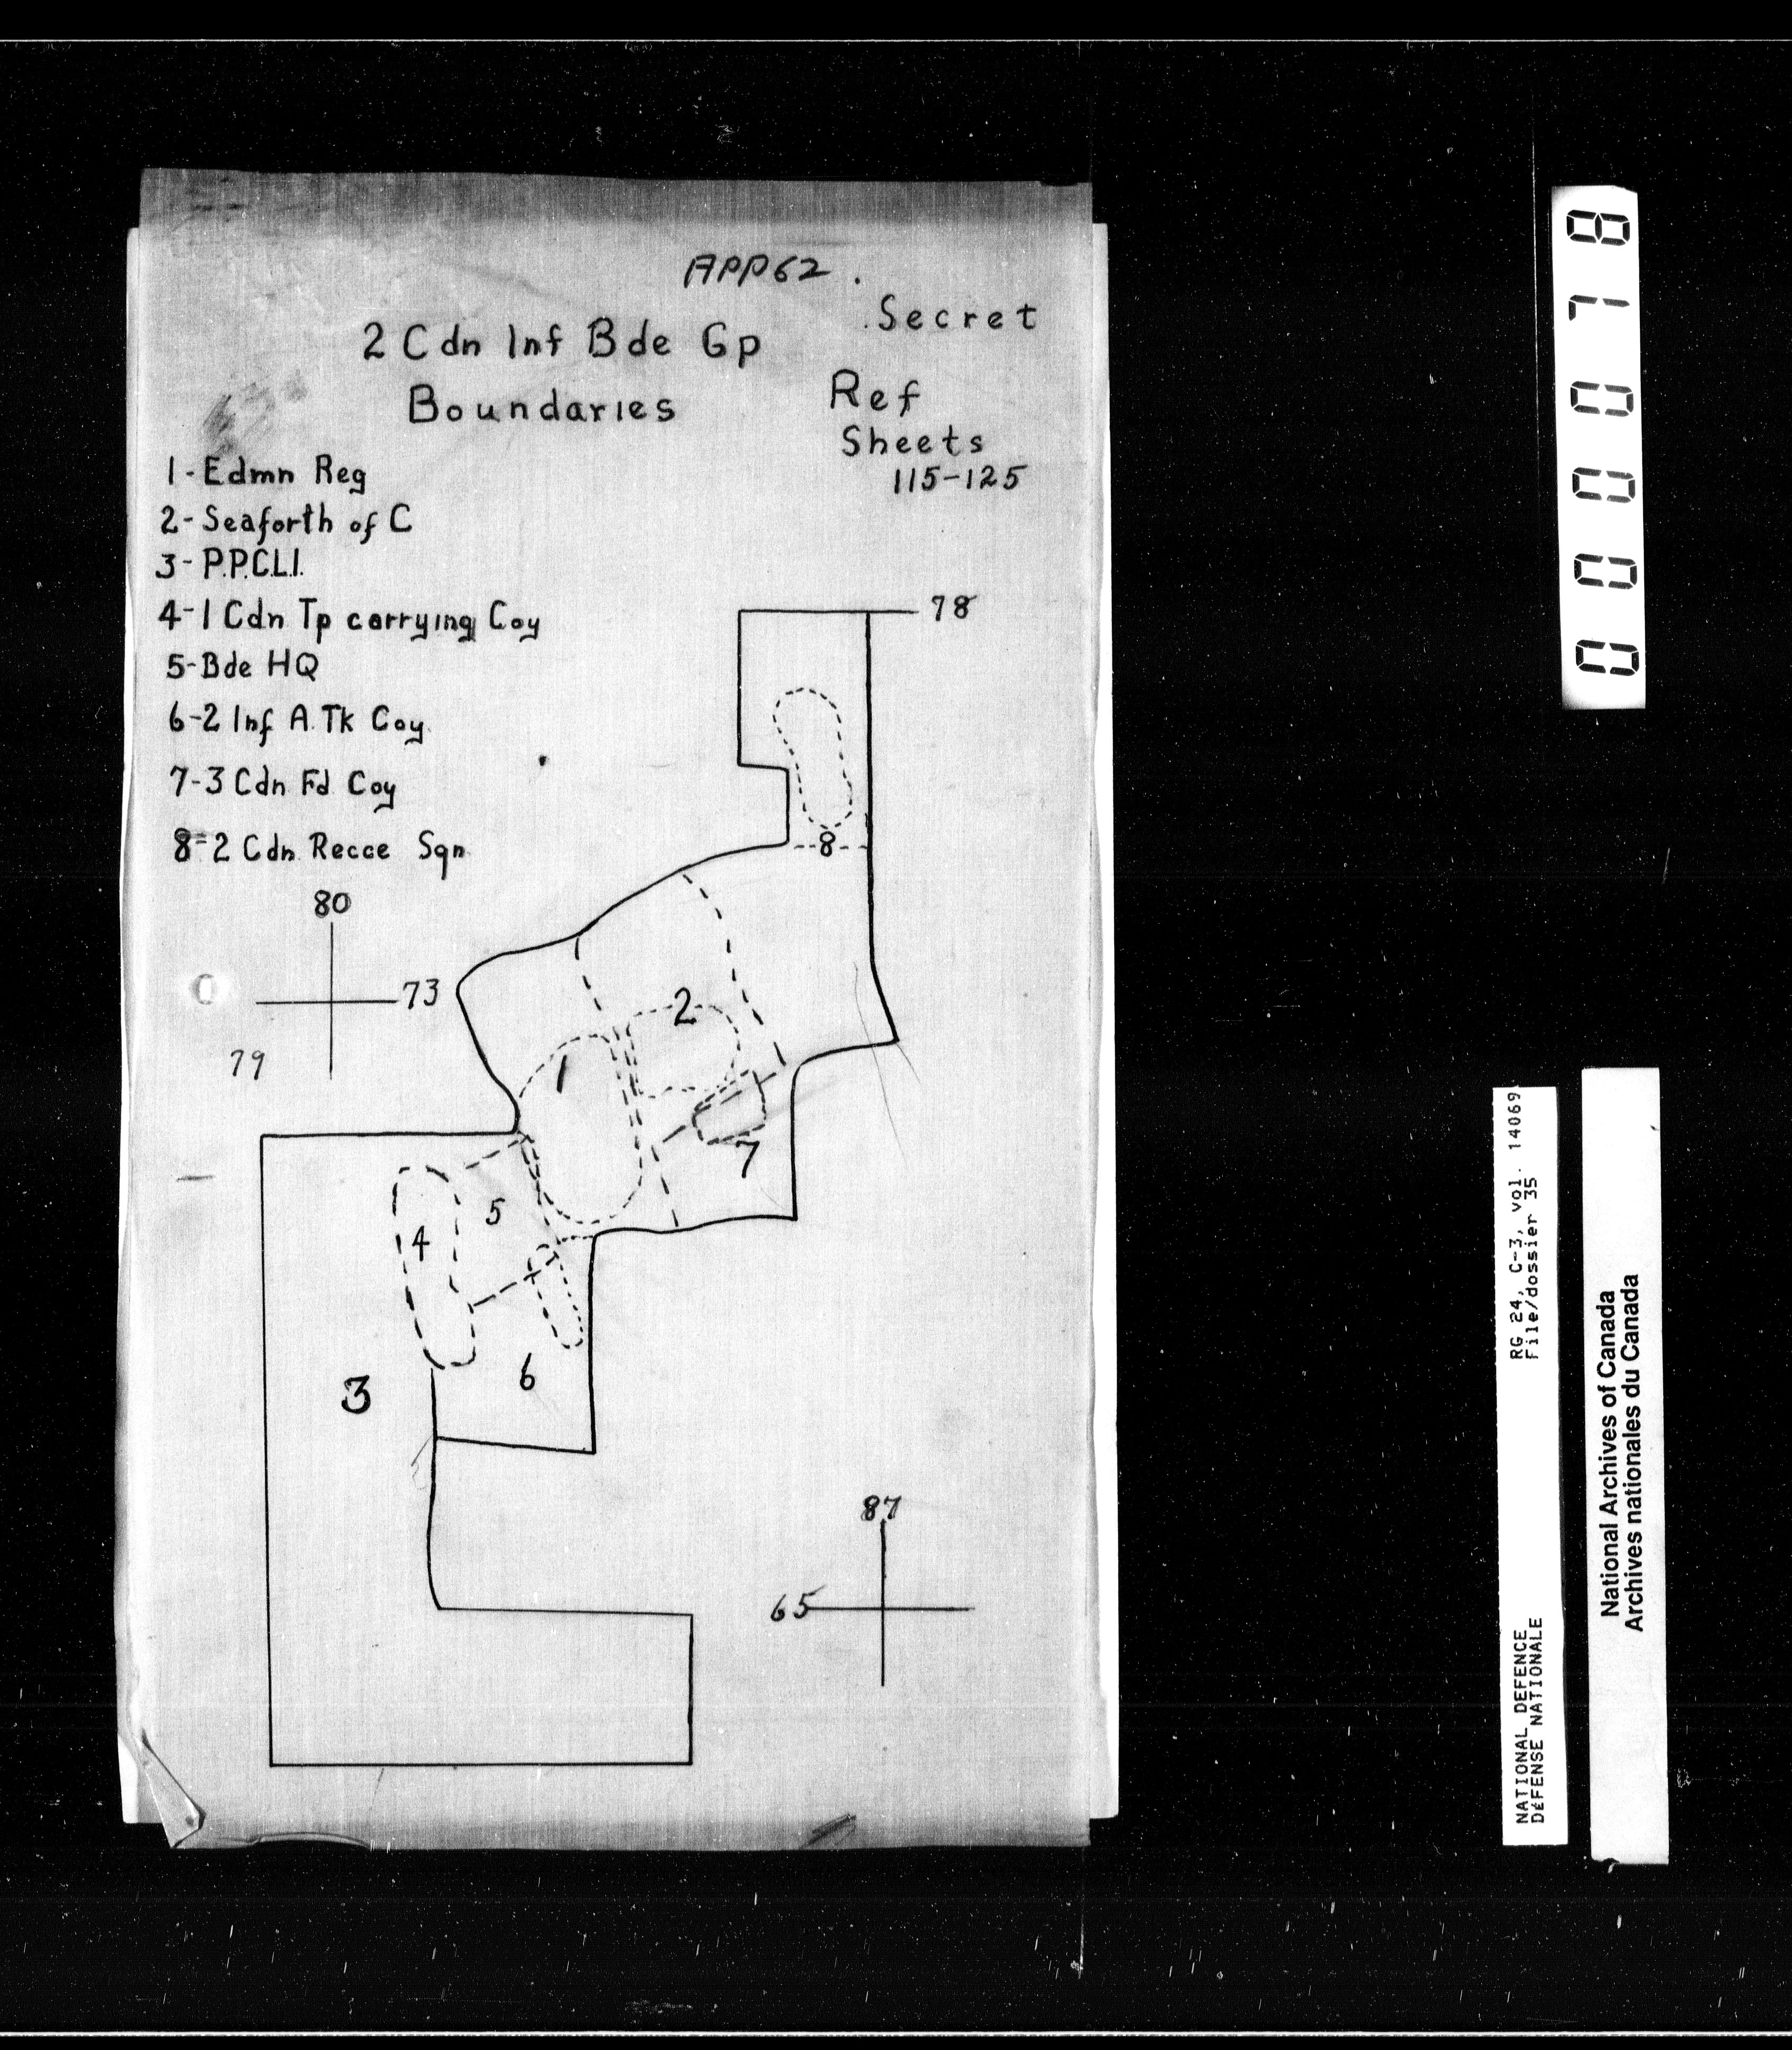 APP 62.
Secret
2 Cdn Inf Bde Gp
Boundaries
Ref
Sheets
115-125
1-Edmn Reg
2-Seaforth of C
3-P.P.C.L.I.
4-1 Cdn Tp carrying Coy
5-Bde HQ
6-2 Inf A.Tk Coy.
7-3 Cdn Fd Coy
8=2 Cdn Recce Sqn
78
8
80
73
79
2
1
7
5
4
3
6
87
65
00078
RG 24, C-3, vol. 14069
File/dossier 35
NATIONAL DEFENCE
DÉFENSE NATIONALE
National Archives of Canada
Archives nationales du Canada